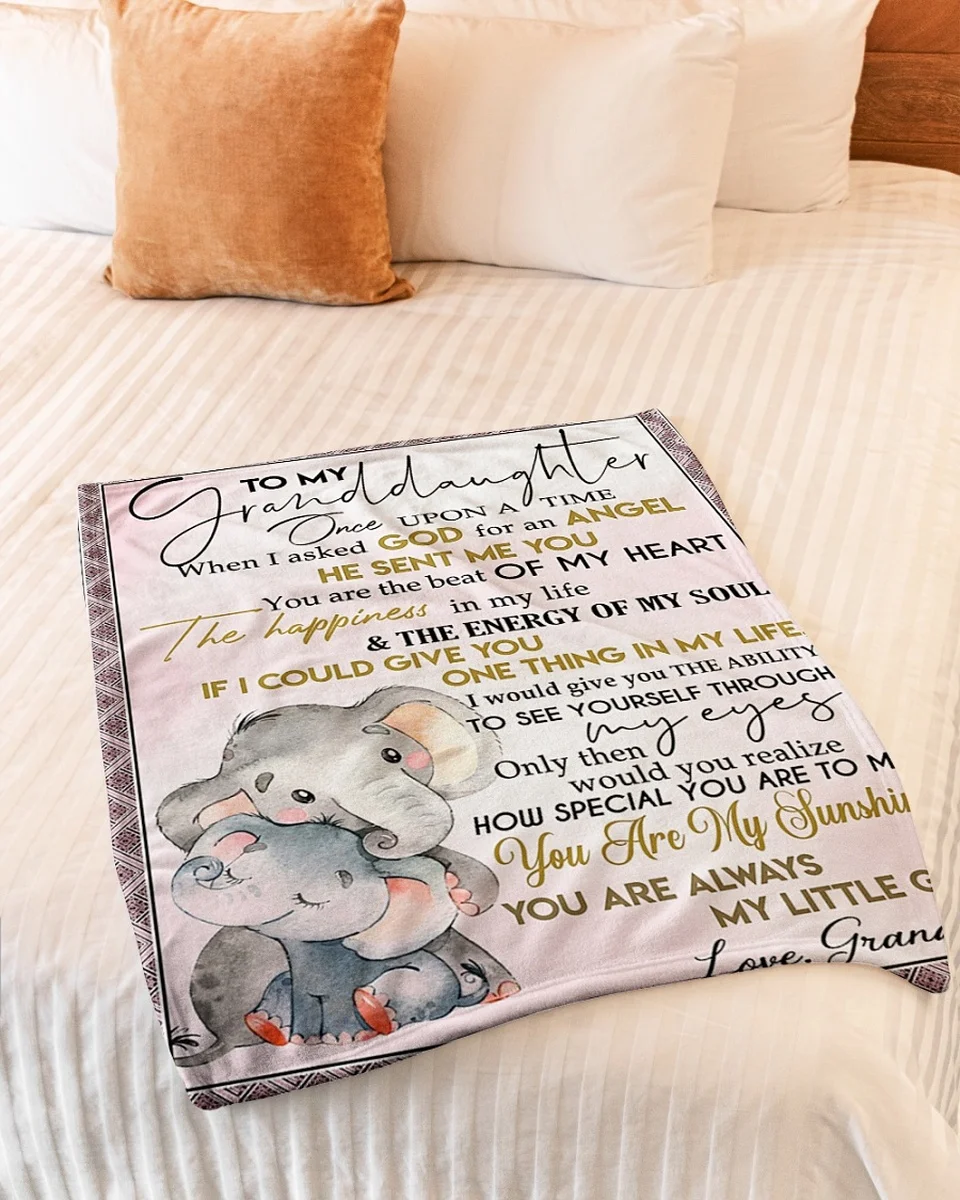 TO MY
Granddaughter
Once UPON A TIME
When I asked GOD for an ANGEL
HE SENT ME YOU
You are the beat OF MY HEART
The happiness in my life
& THE ENERGY OF MY SOUL
IF I COULD GIVE YOU
ONE THING IN MY LIFE
I would give you THE ABILITY
TO SEE YOURSELF THROUGH
my eyes
Only then
would you realize
HOW SPECIAL YOU ARE TO M
You Are My Sunshin
YOU ARE ALWAYS
MY LITTLE G
Love, Gran